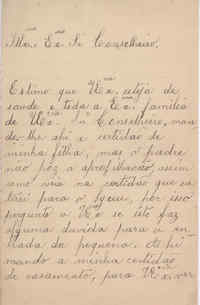 Illmo Exmo Sr Conselheiro.
Estimo que V Exa esteja de
saude e toda a Exma familia
de V Exa Sr Conselheiro, man
do-lhe ahi a certidão de
minha filha, mas o padre
não pôz a aprefilhação, assim
como vem na certidão que en
trou para o lyceu, por isso
pergunto a V Exa se isto faz
alguma duvida para a en
trada da pequena.
mando a minha certidão
de casamento, para V Exa ver